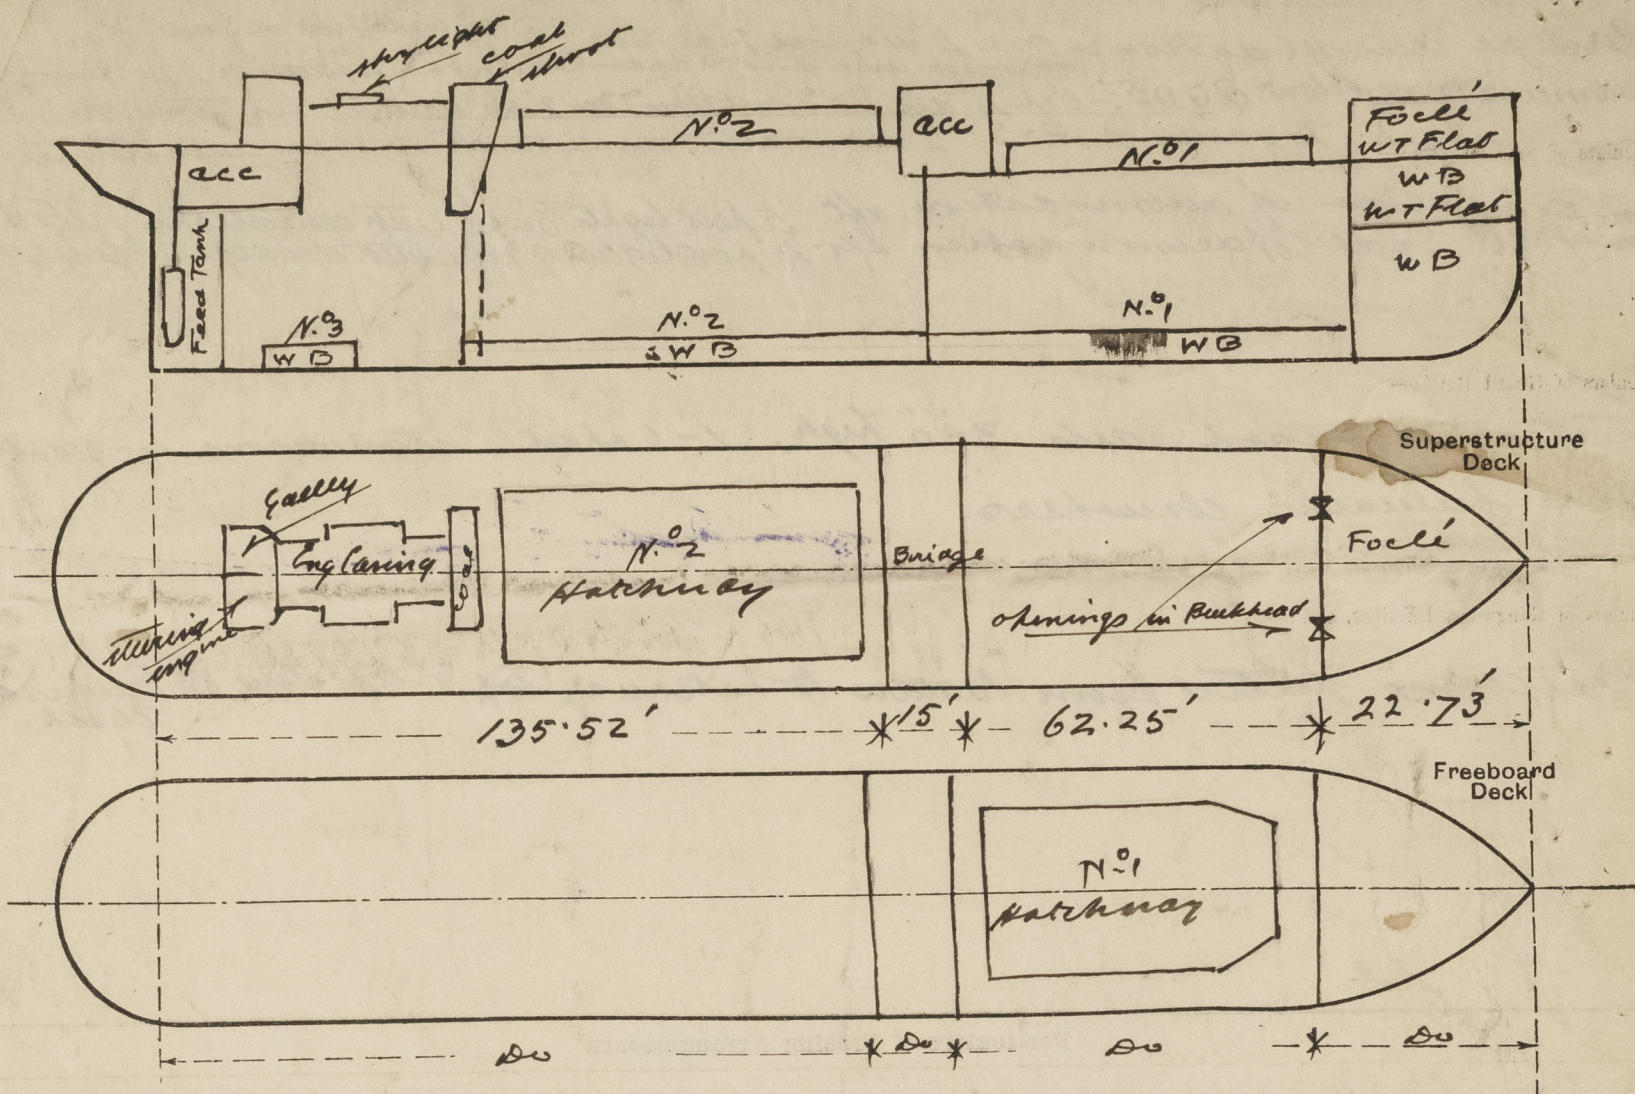 skylight
coal
shoot
acc
acc
Nº2
Nº1
Foclé
WT Flat
WB
WT Flat
WB
Feed Tank
Nº3
WB
Nº2
WB
Nº1
WB
Superstructure
Deck
Galley
Eng Casing
Coal
Steering
engine
Nº2
Hatchway
Bridge
openings in Bulkhead
Foclé
135.52'
15'
62.25'
22.73'
Freeboard
Deck
Nº1
Hatchway
Do
Do
Do
Do